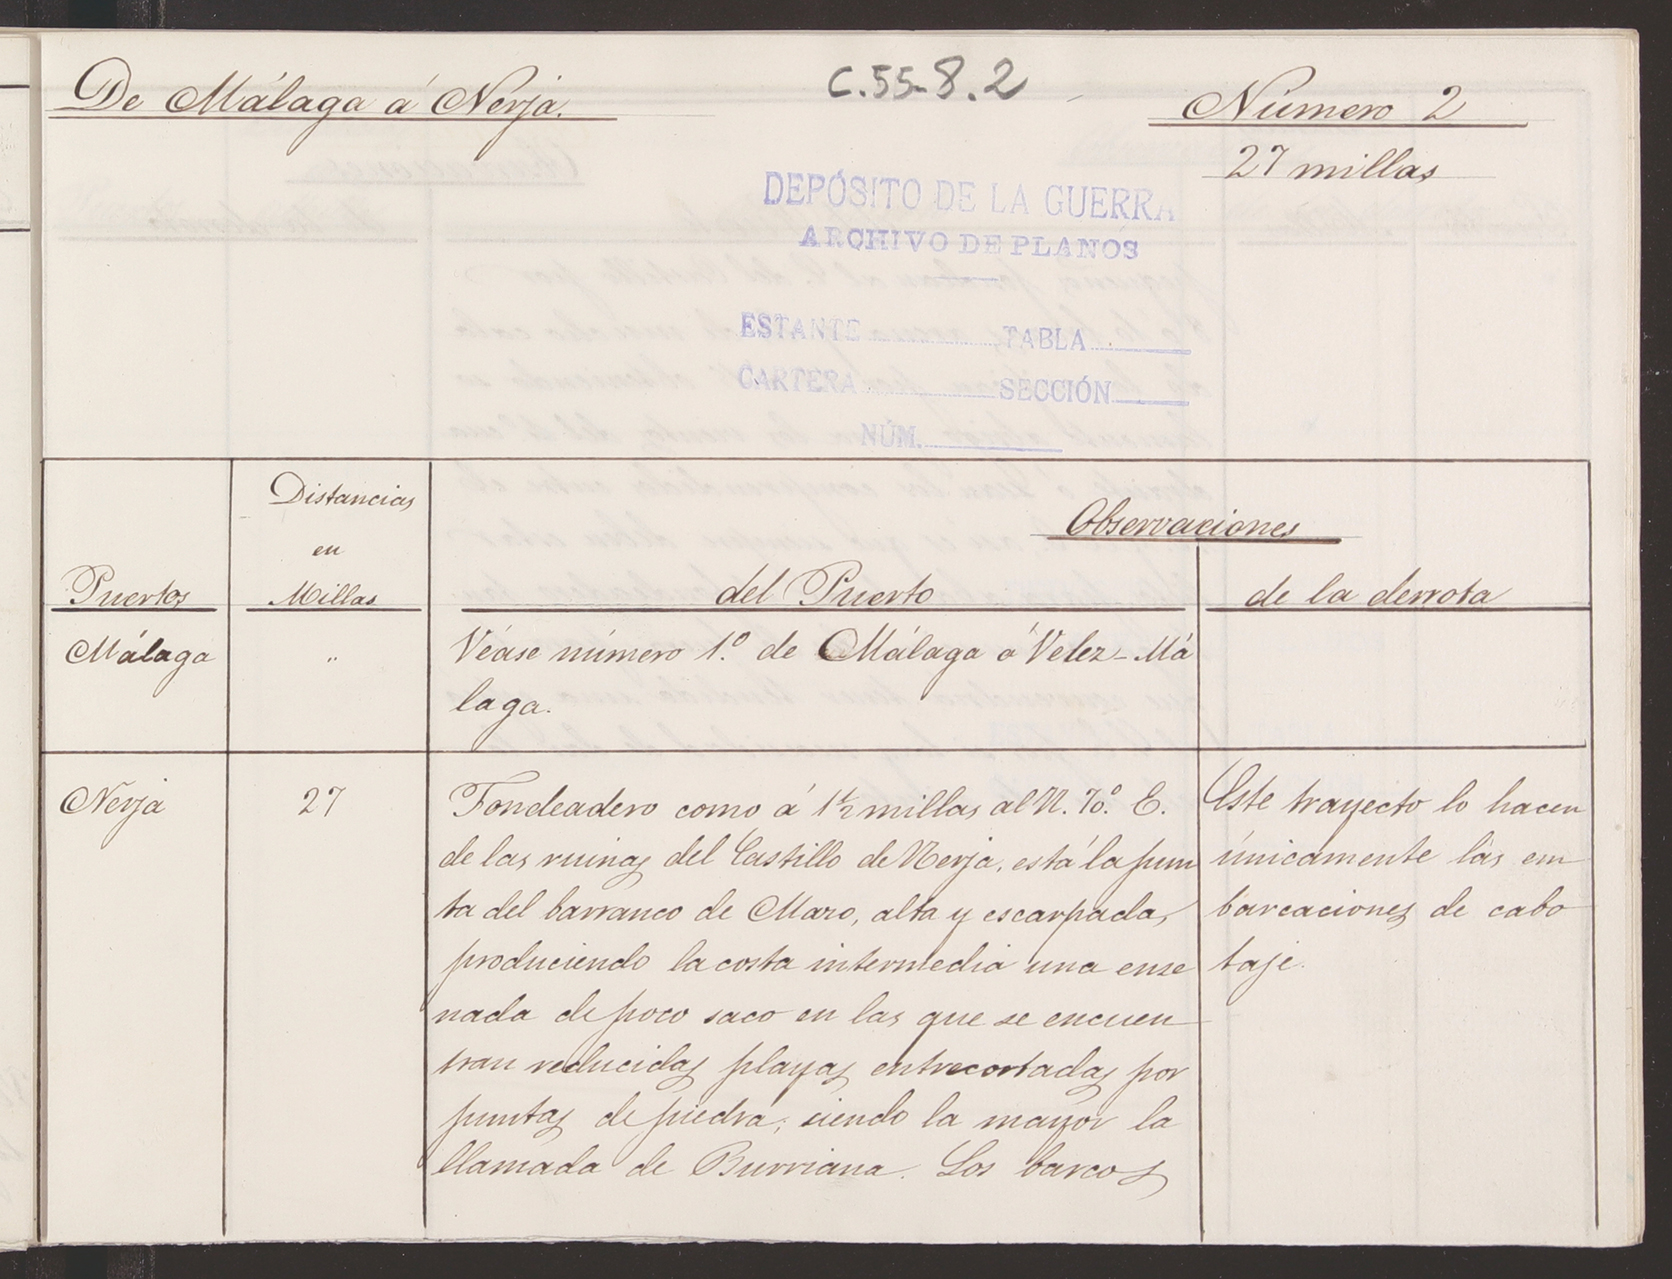 De Málaga á Nerja.
C.55-8.2
Número 2
27 millas
DEPÓSITO DE LA GUERRA
ARCHIVO DE PLANOS
ESTANTE TABLA
CARTERA SECCIÓN
NÚM.
Puertos
Distancias
en
Millas
Observaciones
del Puerto
de la derrota
Málaga
"
Véase número 1.º de Málaga á Velez-Má
laga.
Nerja
27
Fondeadero como á 1 1/2 millas al N. 70.º E.
de las ruinas del Castillo de Nerja, está la pun
ta del barranco de Maro, alta y escarpada,
produciendo la costa intermedia una ense
nada de poco saco en las que se encuen
tran reducidas playas entrecortadas por
puntas de piedra; siendo la mayor la
llamada de Burriana. Los barcos
Este trayecto lo hacen
únicamente las em
barcaciones de cabo
taje.